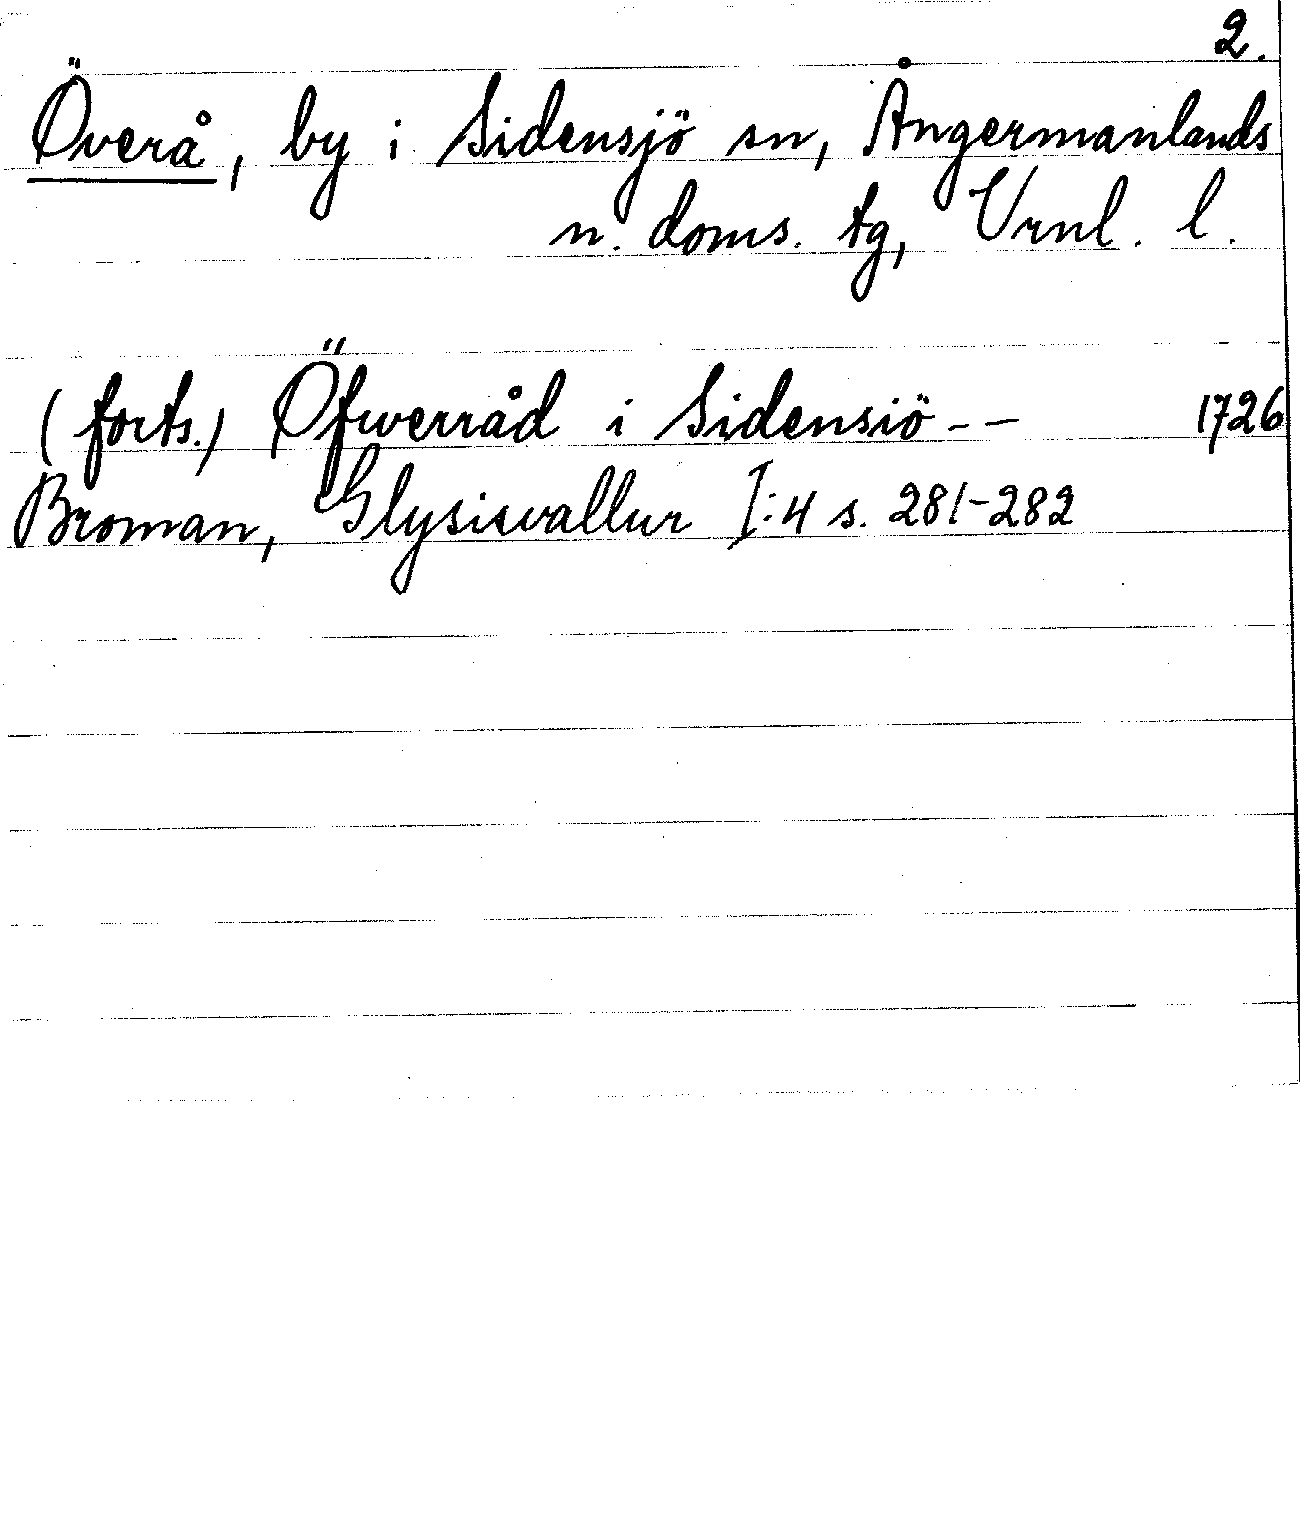 2.
Överå, by i Sidensjö sn, Ångermanlands
n. doms. tg, Vrnl. l.
(forts.) Öfwerråd i Sidensiö -- 1726
Broman, Glysisvallur I:4 s. 281-282